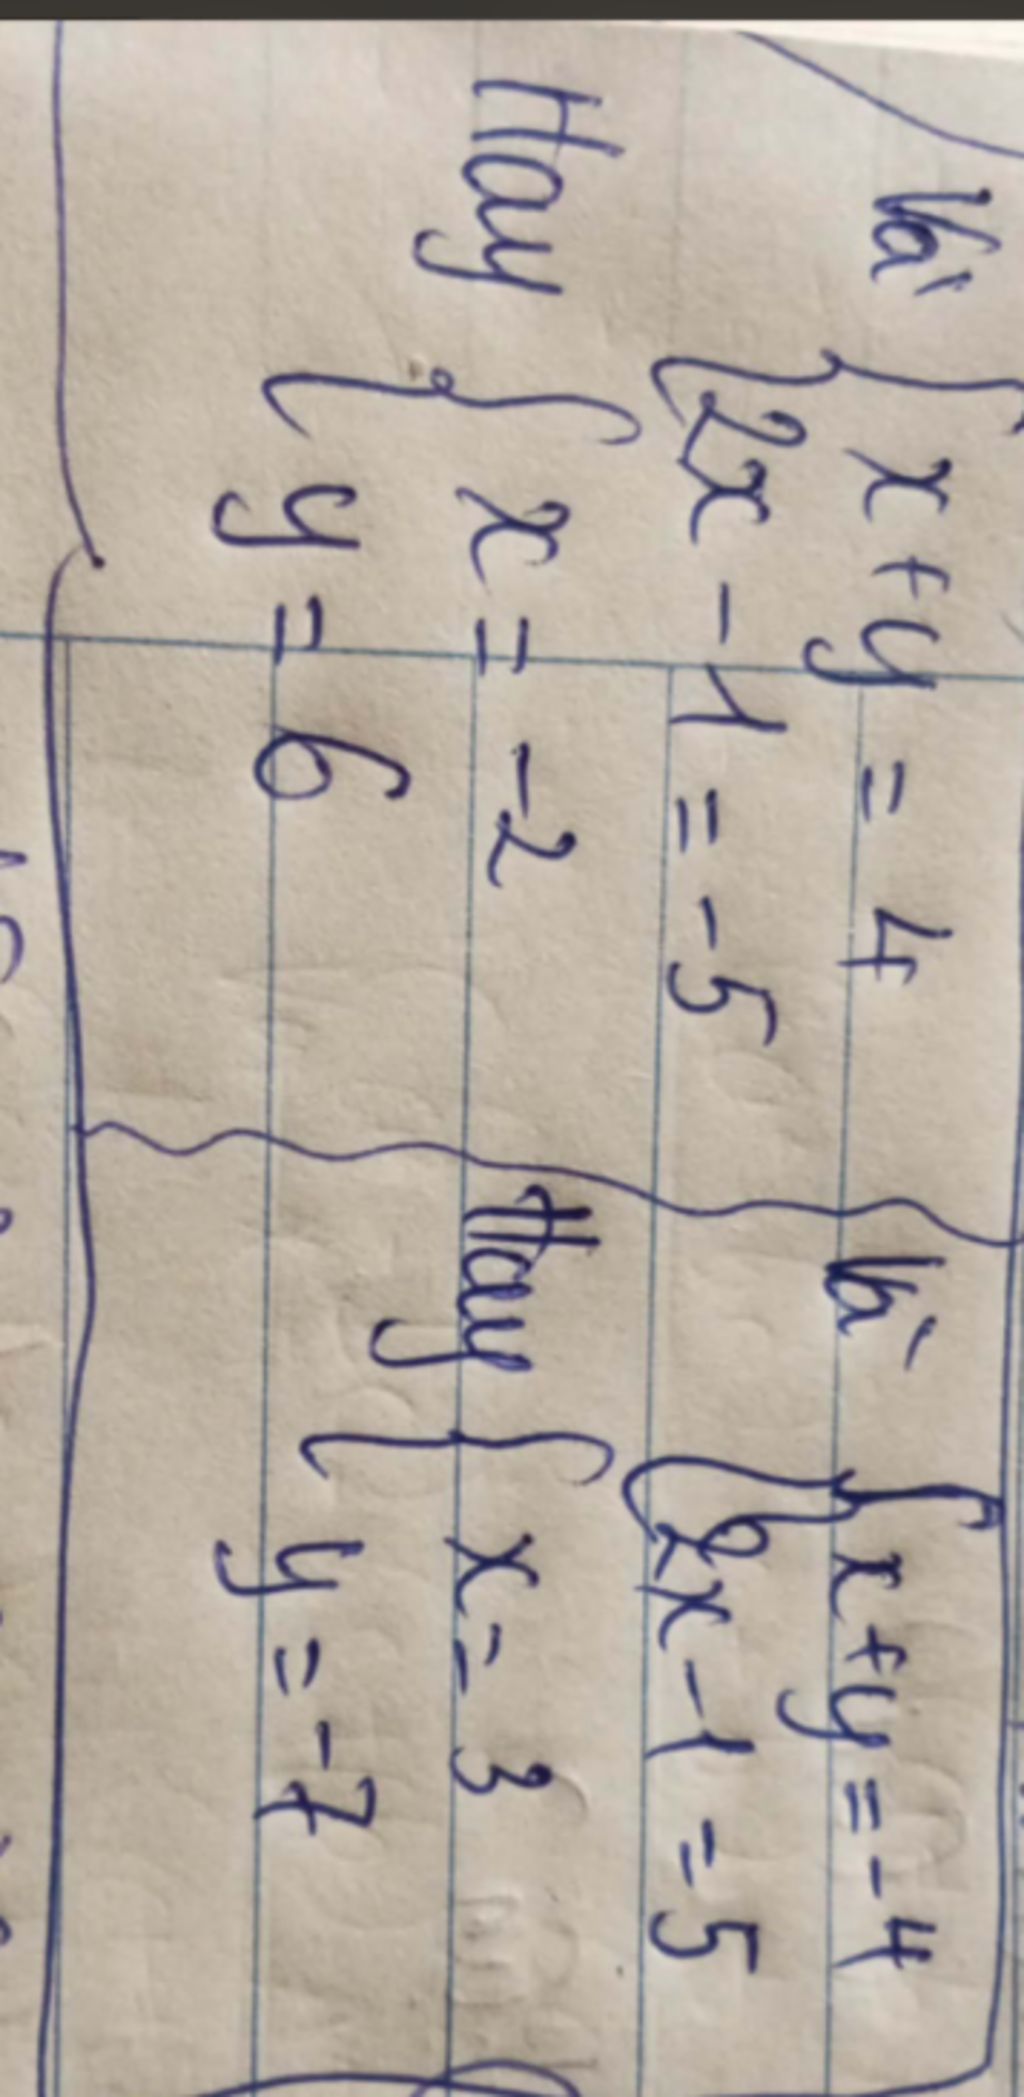 Và { x + y = 4
{ 2x - 1 = -5
Hay { x = -2
{ y = 6
Và { x + y = -4
{ 2x - 1 = 5
Hay { x = 3
{ y = -7